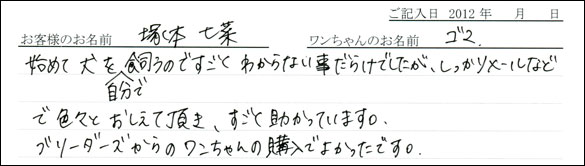 ご記入日 2012 年 月 日
お客様のお名前 塚本 七菜 ワンちゃんのお名前 ゴマ
始めて犬を飼うのですごくわからない事だらけでしたが、しっかりメールなど
自分で
で色々とおしえて頂き、すごく助かっています。
ブリーダーズからのワンちゃんの購入でよかったです。